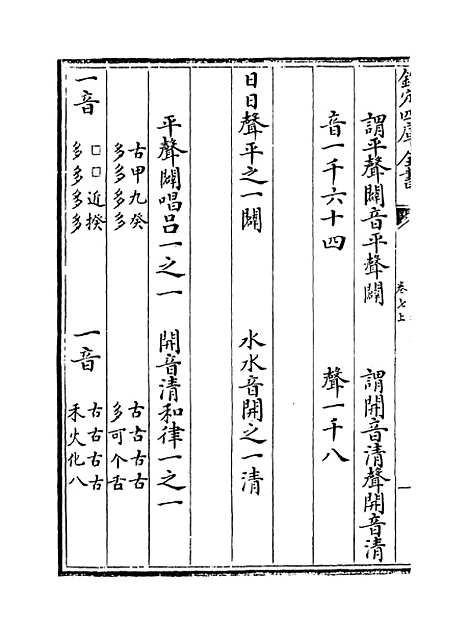 欽定四庫全書
卷七上
謂平聲闢音平聲闢 謂開音清聲開音清
音一千六十四 聲一千八
日日聲平之一闢 水水音開之一清
平聲闢唱呂一之一 開音清和律一之一
古甲九癸 古古古古
多多多多 多可个舌
一音 □□近揆 一音 古古古古
多多多多 禾火化八